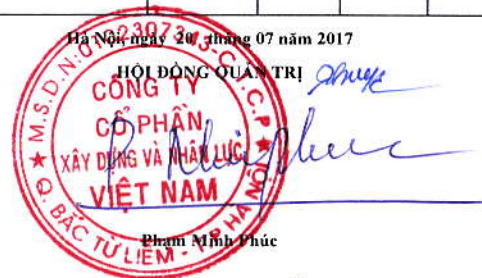 Hà Nội, ngày 20 tháng 07 năm 2017
HỘI ĐỒNG QUẢN TRỊ
CÔNG TY
CỔ PHẦN
XÂY DỰNG VÀ NHÂN LỰC
VIỆT NAM
Q. BẮC TỪ LIÊM - T.P HÀ NỘI
Phạm Minh Phúc